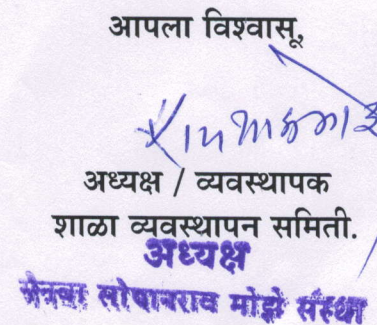 आपला विश्वासू,
अध्यक्ष / व्यवस्थापक
शाळा व्यवस्थापन समिती.
अध्यक्ष
सोपानराव मोझे संस्था